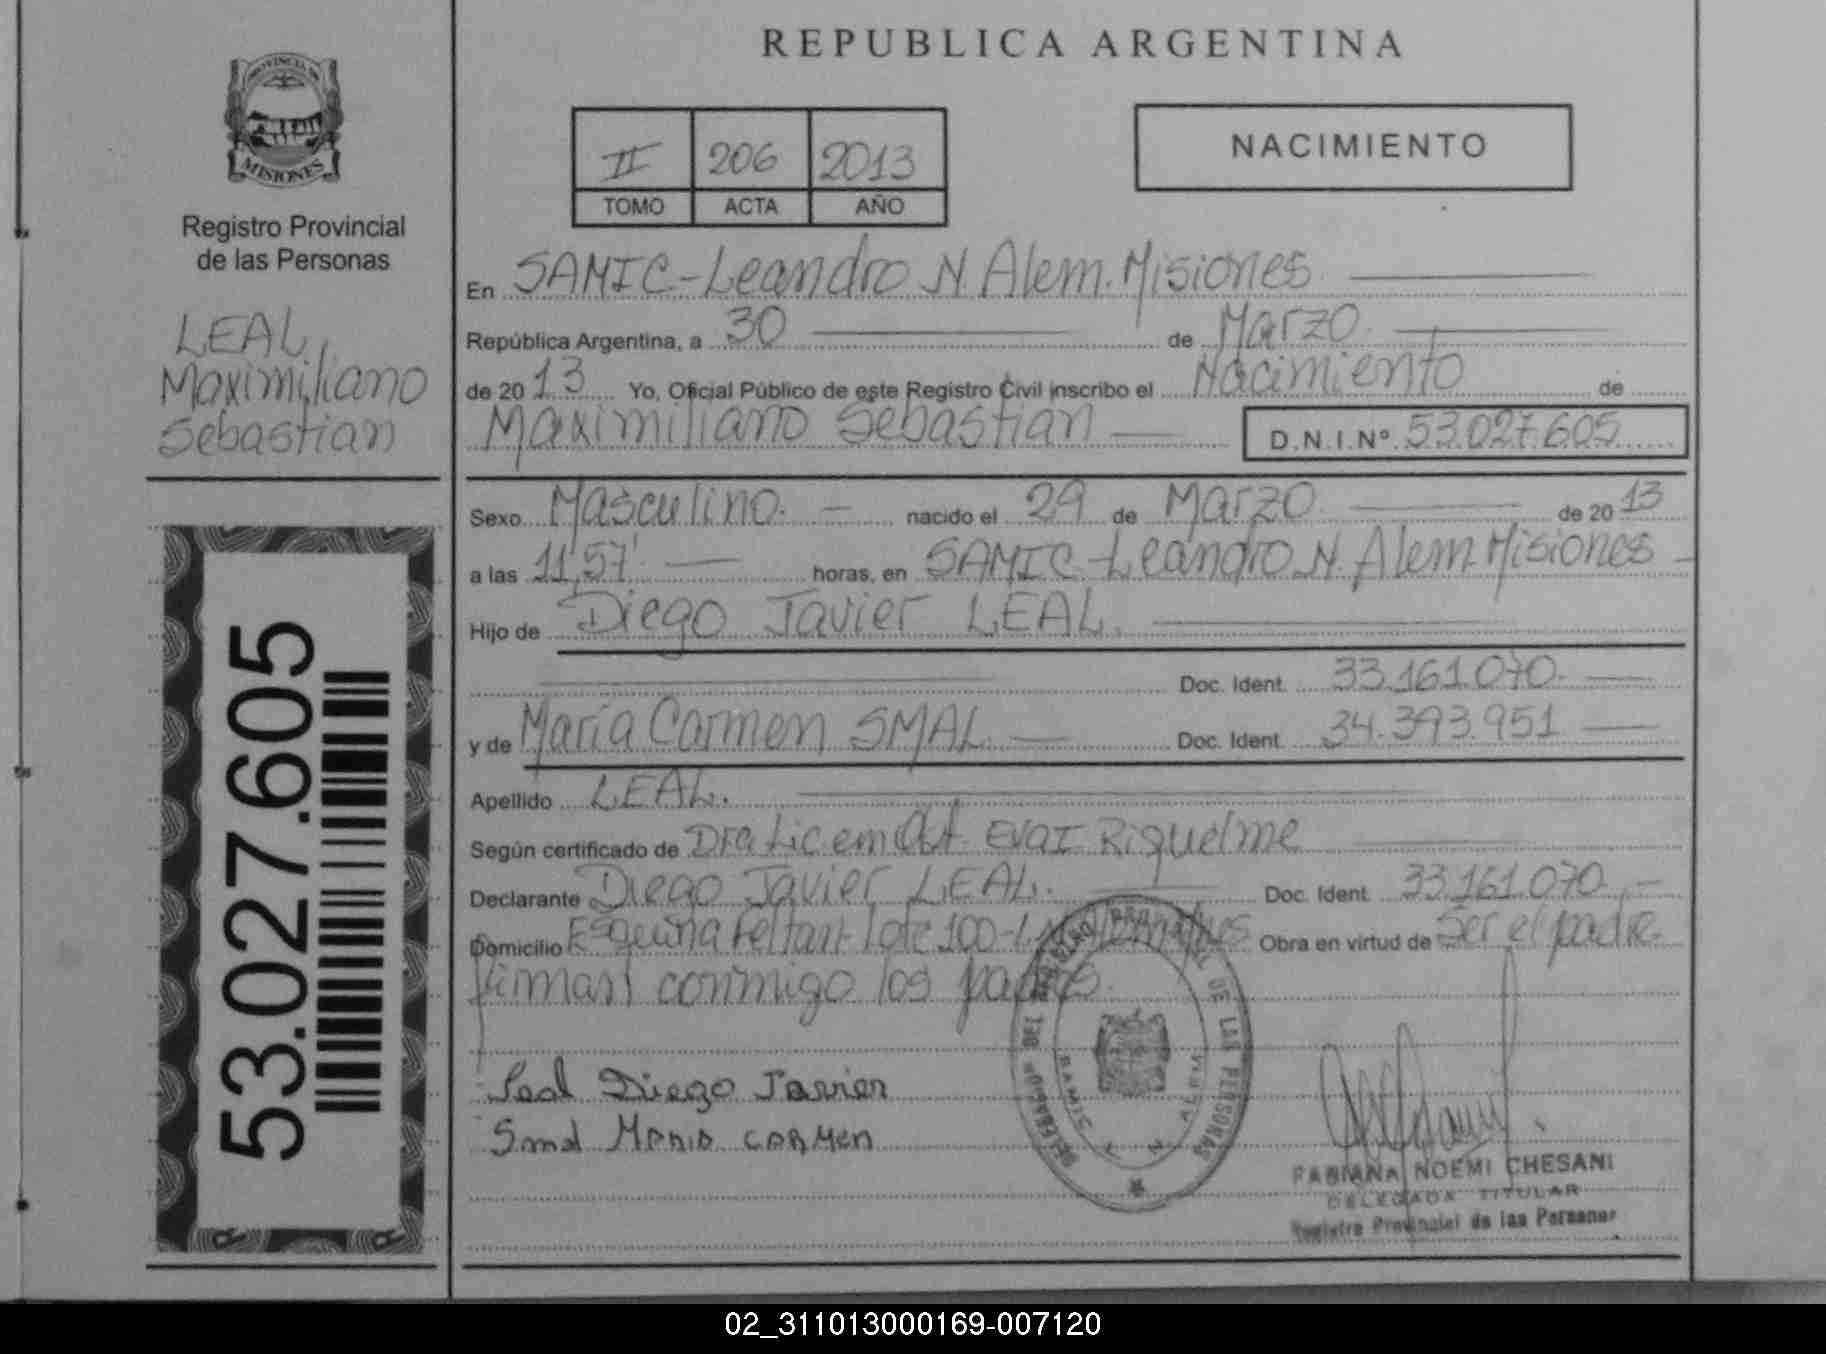 PROVINCIA DE
MISIONES
Registro Provincial
de las Personas
LEAL
Maximiliano
Sebastian
53.027.605
REPUBLICA ARGENTINA
II 206 2013
TOMO ACTA AÑO
NACIMIENTO
En SAMIC-Leandro N. Alem. Misiones
República Argentina, a 30 de Marzo
de 2013 Yo, Oficial Público de este Registro Civil inscribo el Nacimiento de
Maximiliano Sebastian D.N.I.Nº. 53.027.605
Sexo Masculino. nacido el 29 de Marzo de 2013
a las 11,57' horas, en SAMIC-Leandro N. Alem. Misiones
Hijo de Diego Javier LEAL.
Doc. Ident. 33.161.070.
y de María Carmen SMAL Doc. Ident. 34.393.951
Apellido LEAL.
Según certificado de Dra Lic em Obt. Riquelme
Declarante Diego Javier LEAL. Doc. Ident. 33.161.070
Domicilio Esquina lote 100 Obra en virtud de Ser el padre.
firman conmigo los padres.
Leal Diego Javier
Smal Maria Carmen
REGISTRO PROVINCIAL DE LAS PERSONAS
SAMIC L. N. ALEM
FABIANA NOEMI CHESANI
DELEGADA TITULAR
Registro Provincial de las Personas
02_311013000169-007120